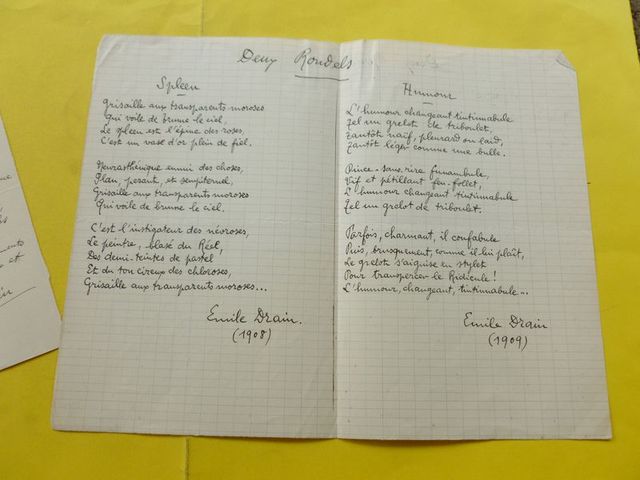 Deux Rondels
Spleen
Grisaille aux transparents moroses
Qui voile de brume le ciel,
Le spleen est l'épine des roses,
C'est un vase d'or plein de fiel.
Neurasthénique ennui des choses,
Plan, pesant, et sempiternel,
Grisaille aux transparents moroses
Qui voile de brume le ciel.
C'est l'instigateur des névroses,
Le peintre, blasé du Réel,
Des demi-teintes de pastel
Et du ton cireux des chloroses,
Grisaille aux transparents moroses...
Emile Drain.
(1908)
Humour
L'humour changeant tintinnabule
Tel un grelot de triboulet,
Tantôt naïf, pleurard ou laid,
Tantôt léger comme une bulle.
Pince-sans-rire funambule,
Vif et pétillant feu-follet,
L'humour changeant tintinnabule
Tel un grelot de triboulet.
Parfois, charmant, il confabule
Puis, brusquement, comme il lui plaît,
Le grelot s'aiguise en stylet
Pour transpercer le Ridicule!
L'humour, changeant, tintinnabule...
Emile Drain
(1909)